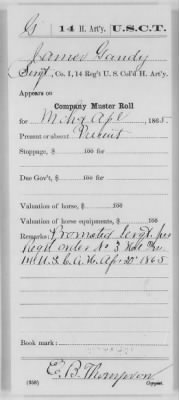 G | 14 H. Art'y. | U.S.C.T.
James Gandy
Sergt, Co. I, 14 Reg't U. S. Col'd H. Art'y.
Appears on
Company Muster Roll
for Mch & Apl, 1865.
Present or absent Present
Stoppage, $ 100 for
Due Gov't, $ 100 for
Valuation of horse, $ 100
Valuation of horse equipments, $ 100
Remarks: Promoted Sergt per
Regtl order No 3
U.S.C.A.H. Apr 20" 1865
Book mark:
E. B. Thompson
(358) Copyist.